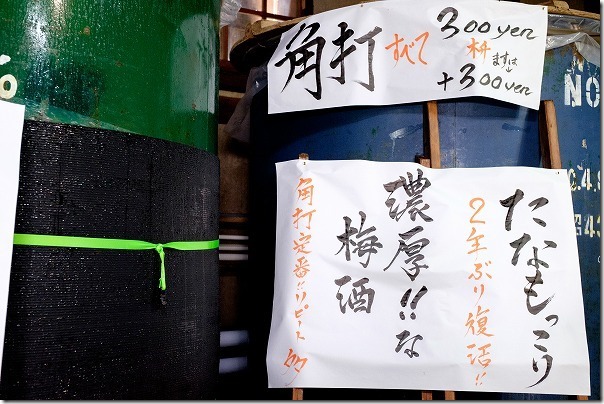 角打 すべて 300yen
枡 ますは
+300yen
たなもっこり
2年ぶり復活!!
濃厚!!な
梅酒
角打定番!!リピート多
NO